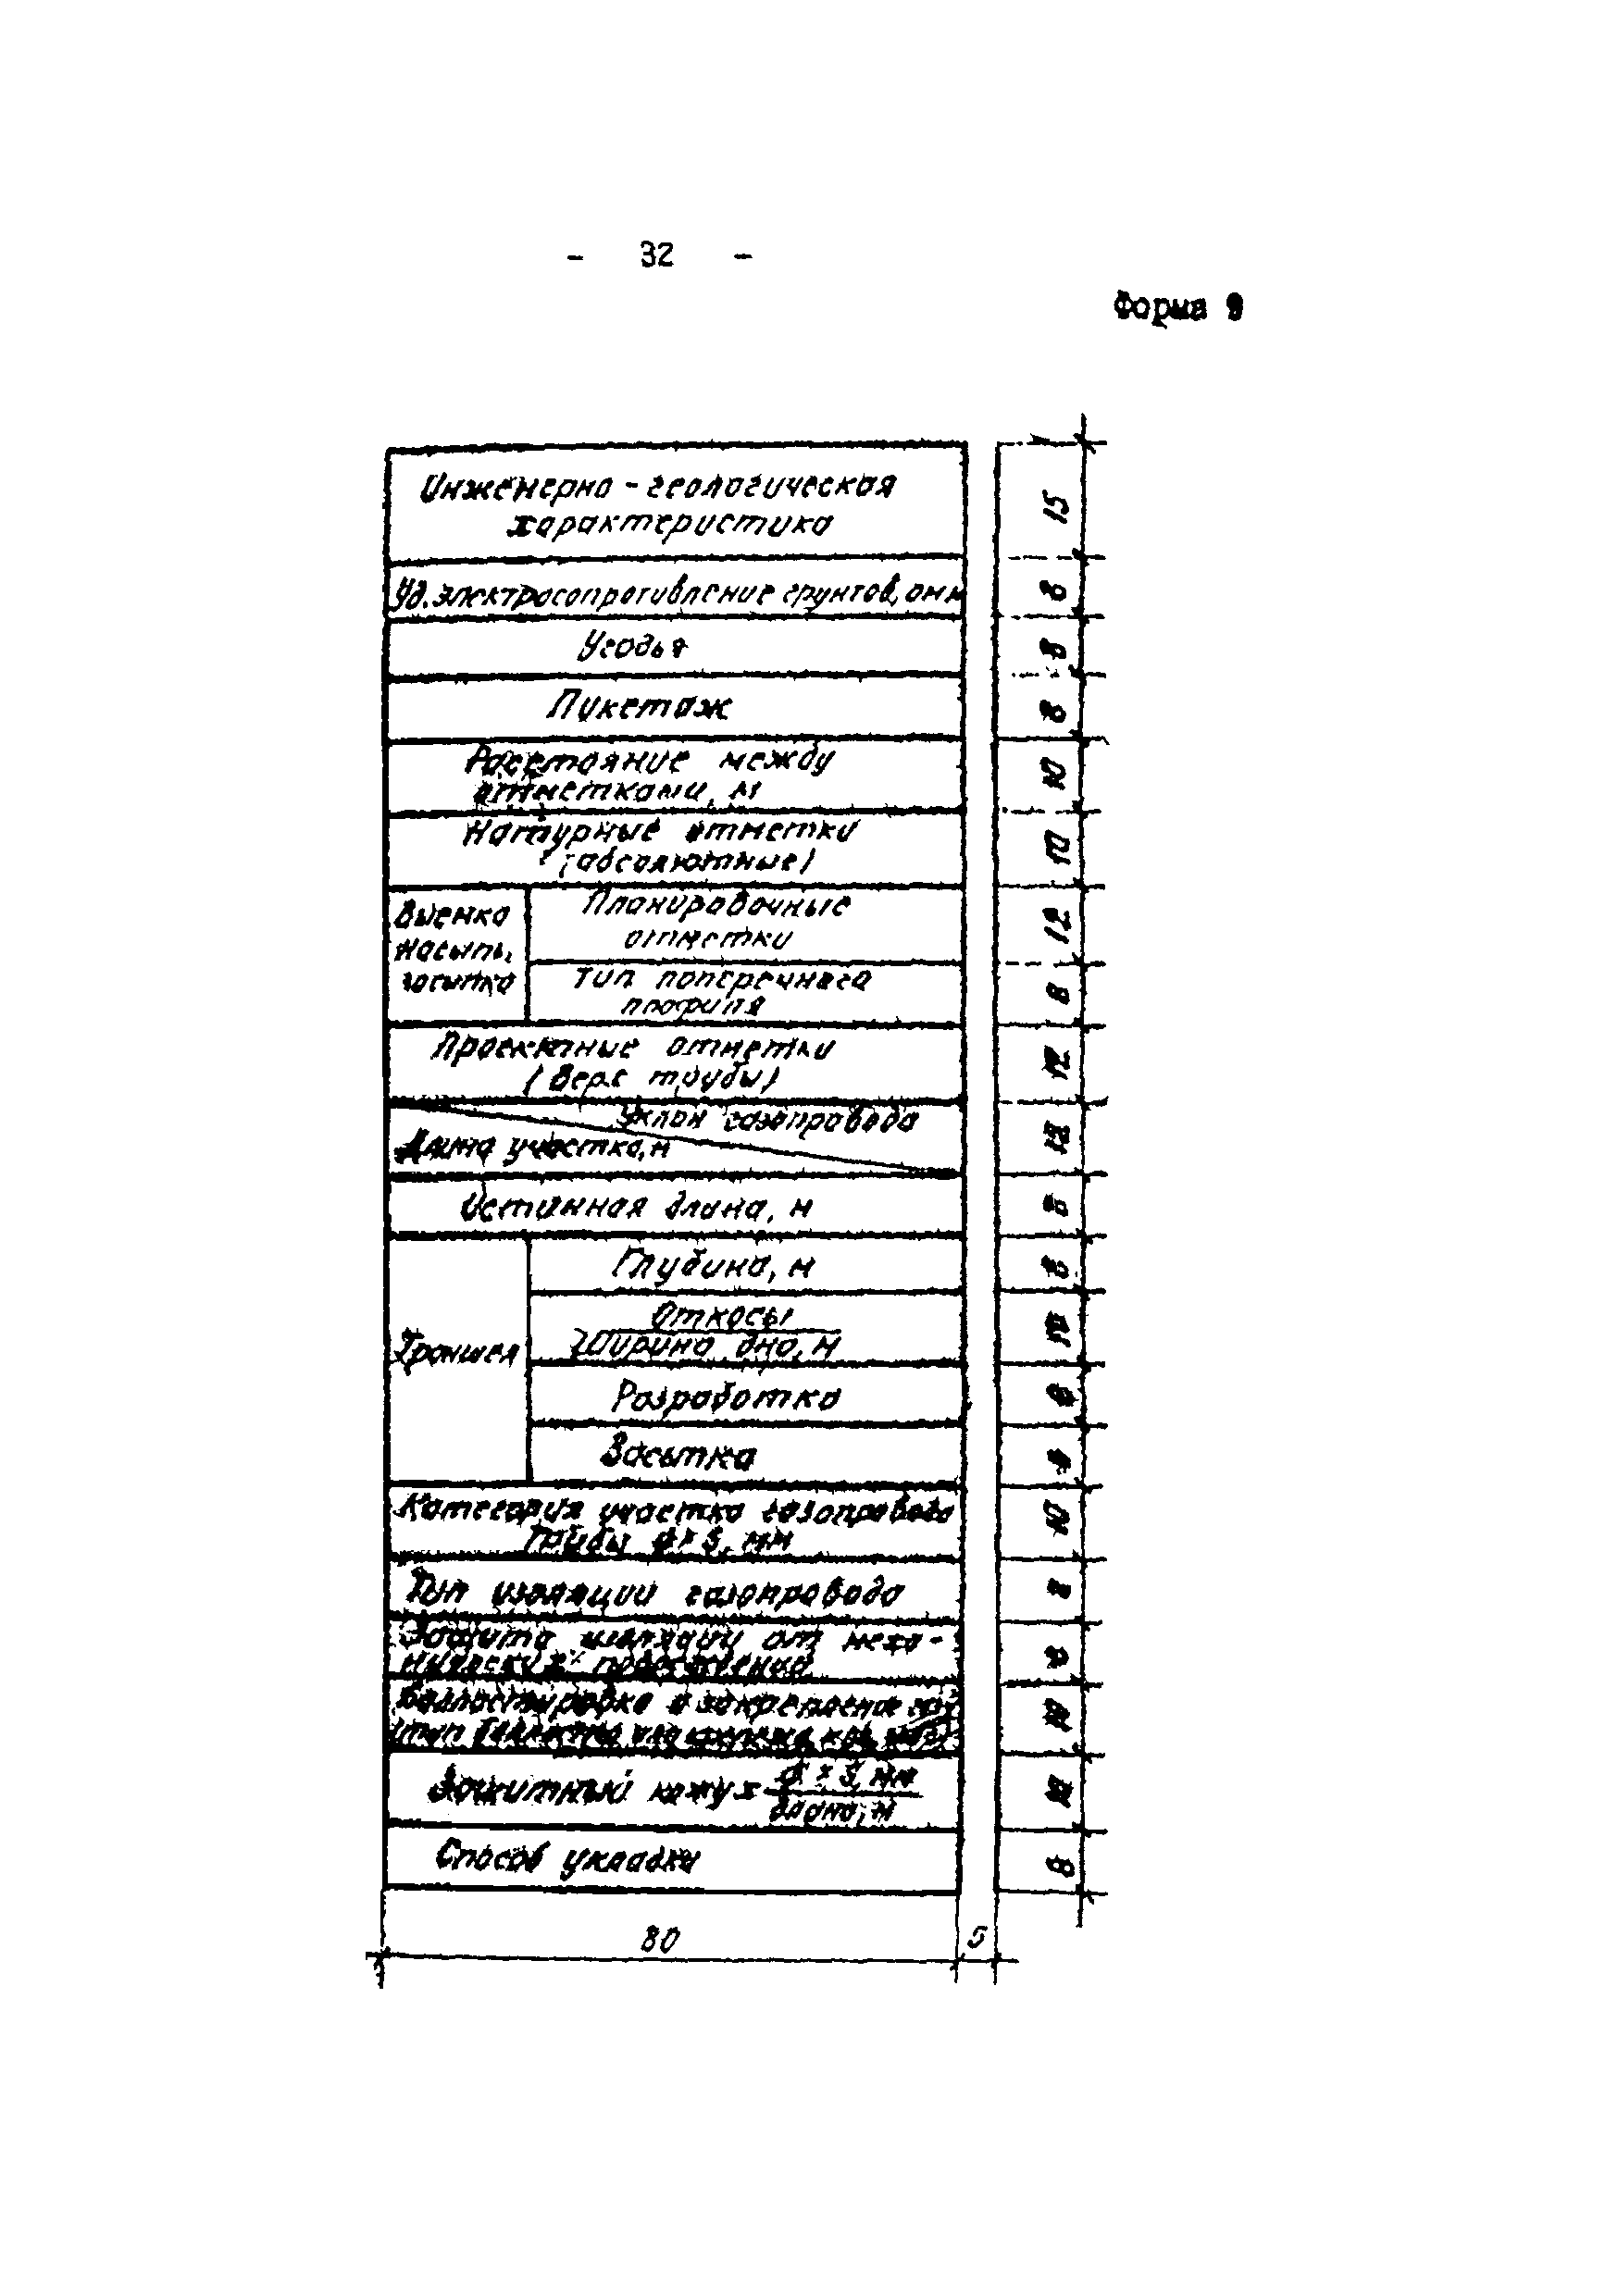 - 32 -
Форма 9
Инженерно-геологическая
характеристика
15
Уд. электросопротивление грунтов, омм
8
Угодья
8
Пикетаж
8
Расстояние между
отметками, м
10
Натурные отметки
(абсолютные)
10
Выемка
насыпь,
засыпка
Планировочные
отметки
12
Тип поперечного
профиля
8
Проектные отметки
(верх трубы)
12
Уклон газопровода
Длина участка, м
Истинная длина, м
8
Траншея
Глубина, м
8
Откосы
Ширина дна, м
Разработка
Засыпка
Категория участка газопровода
Трубы ø×S, мм
10
Тип изоляции газопровода
Защита изоляции от меха-
нических повреждений
Балластировка и закрепление
Защитный кожух ø×S, мм
длина, м
Способ укладки
8
80
5